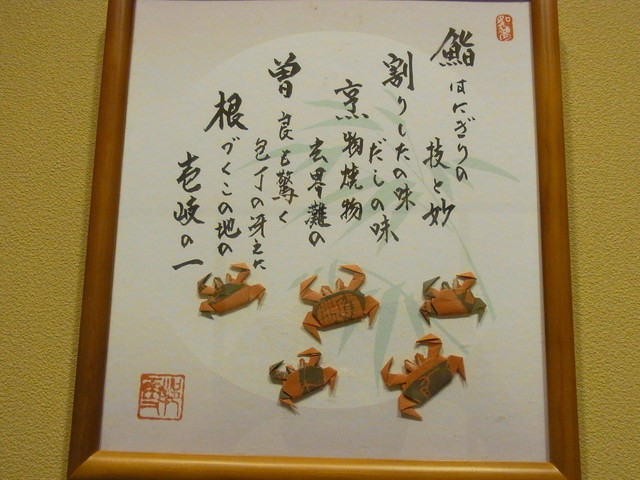 鮨はにぎりの
技と妙
割りしたの味
だしの味
烹物焼物
玄界灘の
曽良も驚く
包丁の冴えに
根づくこの地の
壱岐の一